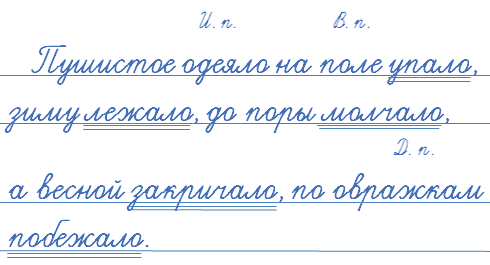 И. п. В. п.
Пушистое одеяло на поле упало,
зиму лежало, до поры молчало,
Д. п.
а весной закричало, по овражкам
побежало.